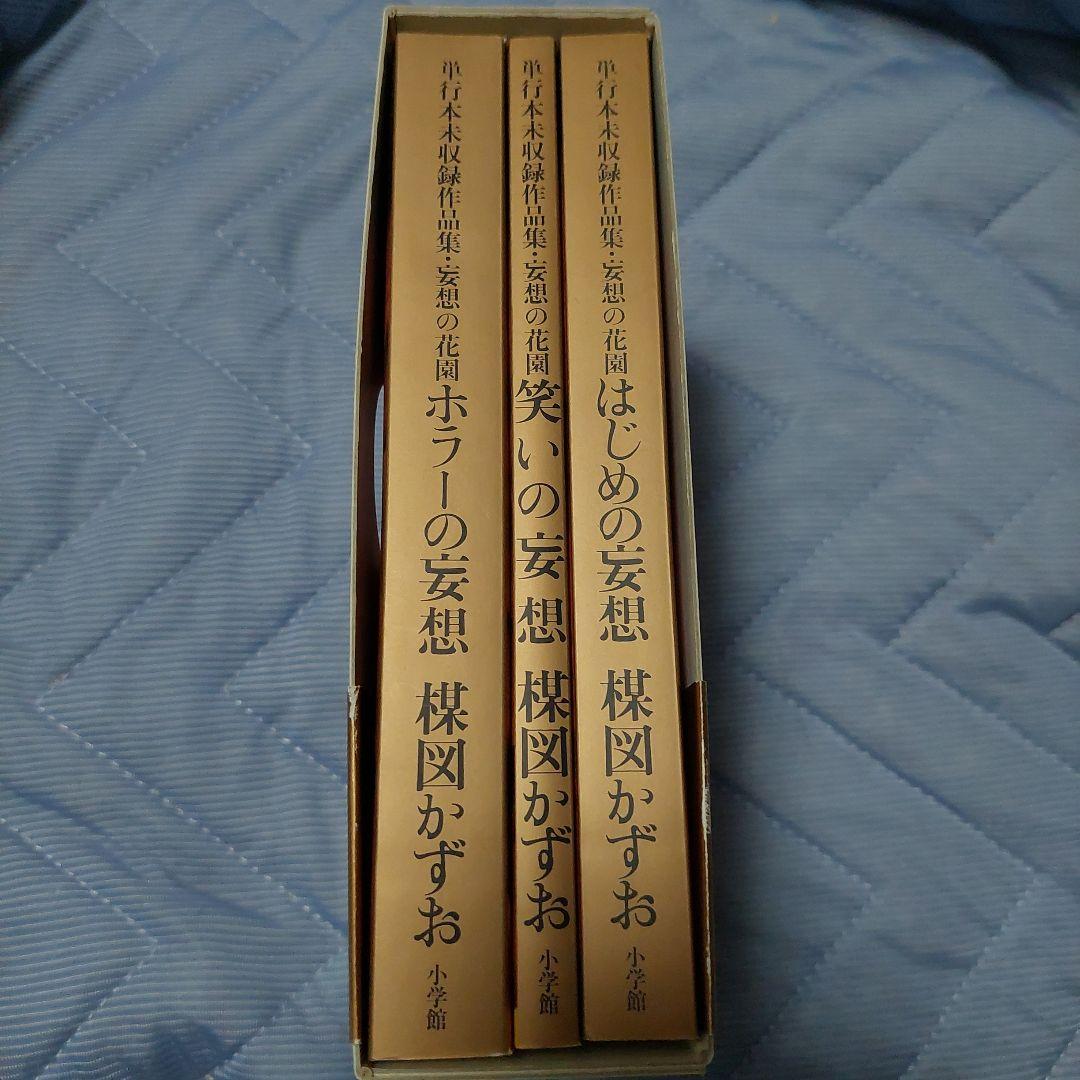 単行本未収録作品集・妄想の花園
ホラーの妄想 楳図かずお
小学館
単行本未収録作品集・妄想の花園
笑いの妄想 楳図かずお
小学館
単行本未収録作品集・妄想の花園
はじめの妄想 楳図かずお
小学館